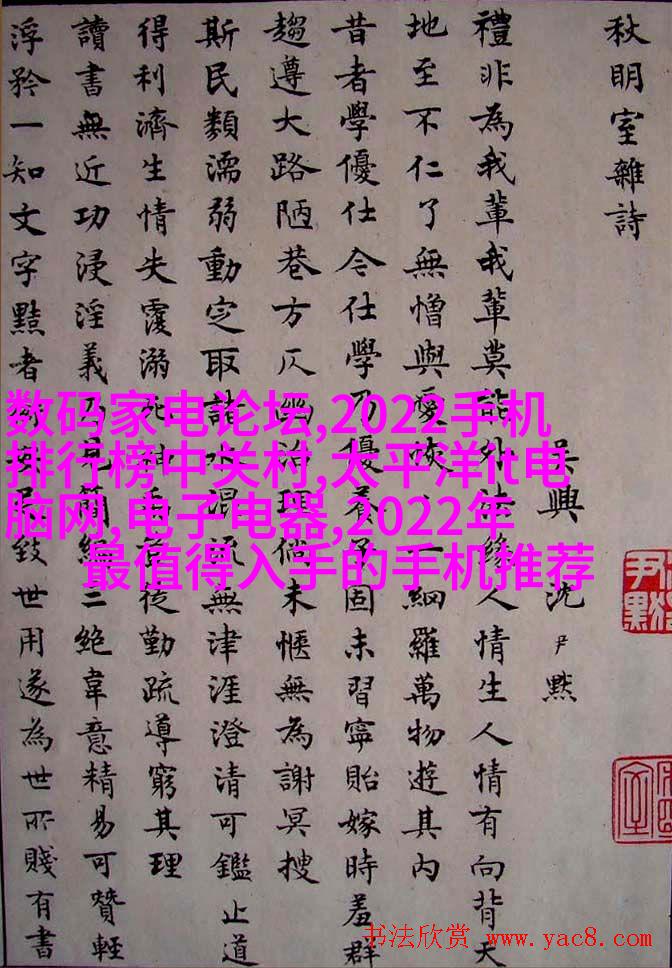 秋明室雜詩
吳興沈尹默
禮非為我輩我輩莫能外法緣人情生人情有向背天
地至不仁了無憎與愛恢恢一網羅萬物遊其內
昔者學優仕今仕學乃優養子固未習寧貽嫁時羞群
趨遵大路陋巷方仄幽治理倘未愜無為謝冥搜
斯民類濡弱動定取諸水混流無津涯澄清可鑑止道
得利濟生情失覆溺死神禹徒勤疏導窮其理
讀書無近功浸淫義乃見簡編三絕韋意精易可贊輕
浮矜一知文字黠者致世用遂為世所賤有書
数码家电论坛,2022手机
排行榜中关村,太平洋it电
脑网,电子电器,2022年
最值得入手的手机推荐
书法欣赏 www.yac8.com